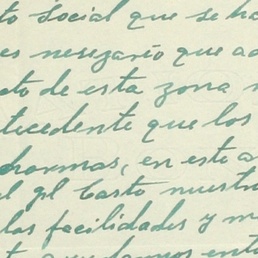 to social que se ha
es nesezario que ad
cto de esta zona
tecedente que los
hormas, en este a
el pl Casto nuestr
las facilidades y m